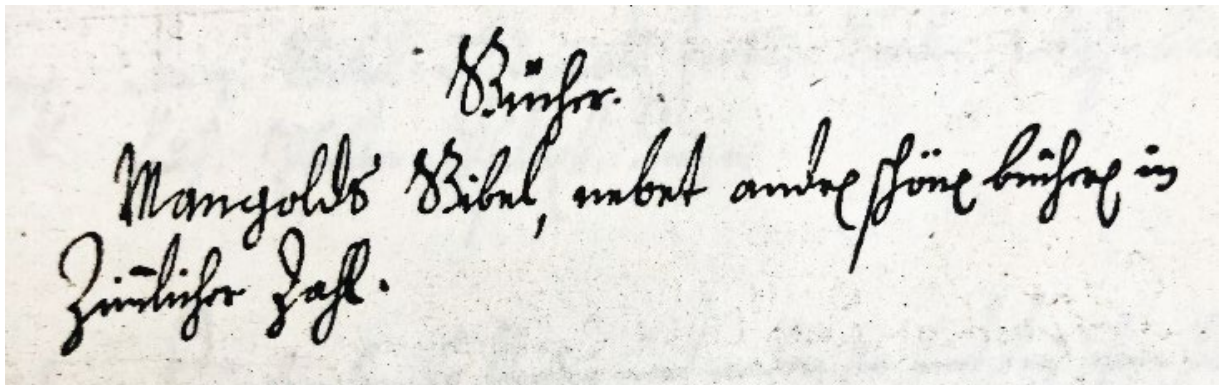 Bücher.
Mangolds Bibel, nebet andren schönen büchern in
Zimlicher Zahl.